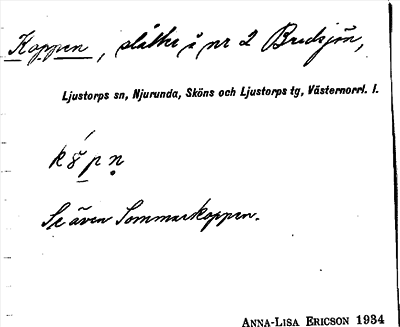 Koppen, slåtter å nr 2 Bredsjön,
Ljustorps sn, Njurunda, Sköns och Ljustorps tg, Västernorrl. l.
Se även Sommarkoppen.
ANNA-LISA ERICSON 1934